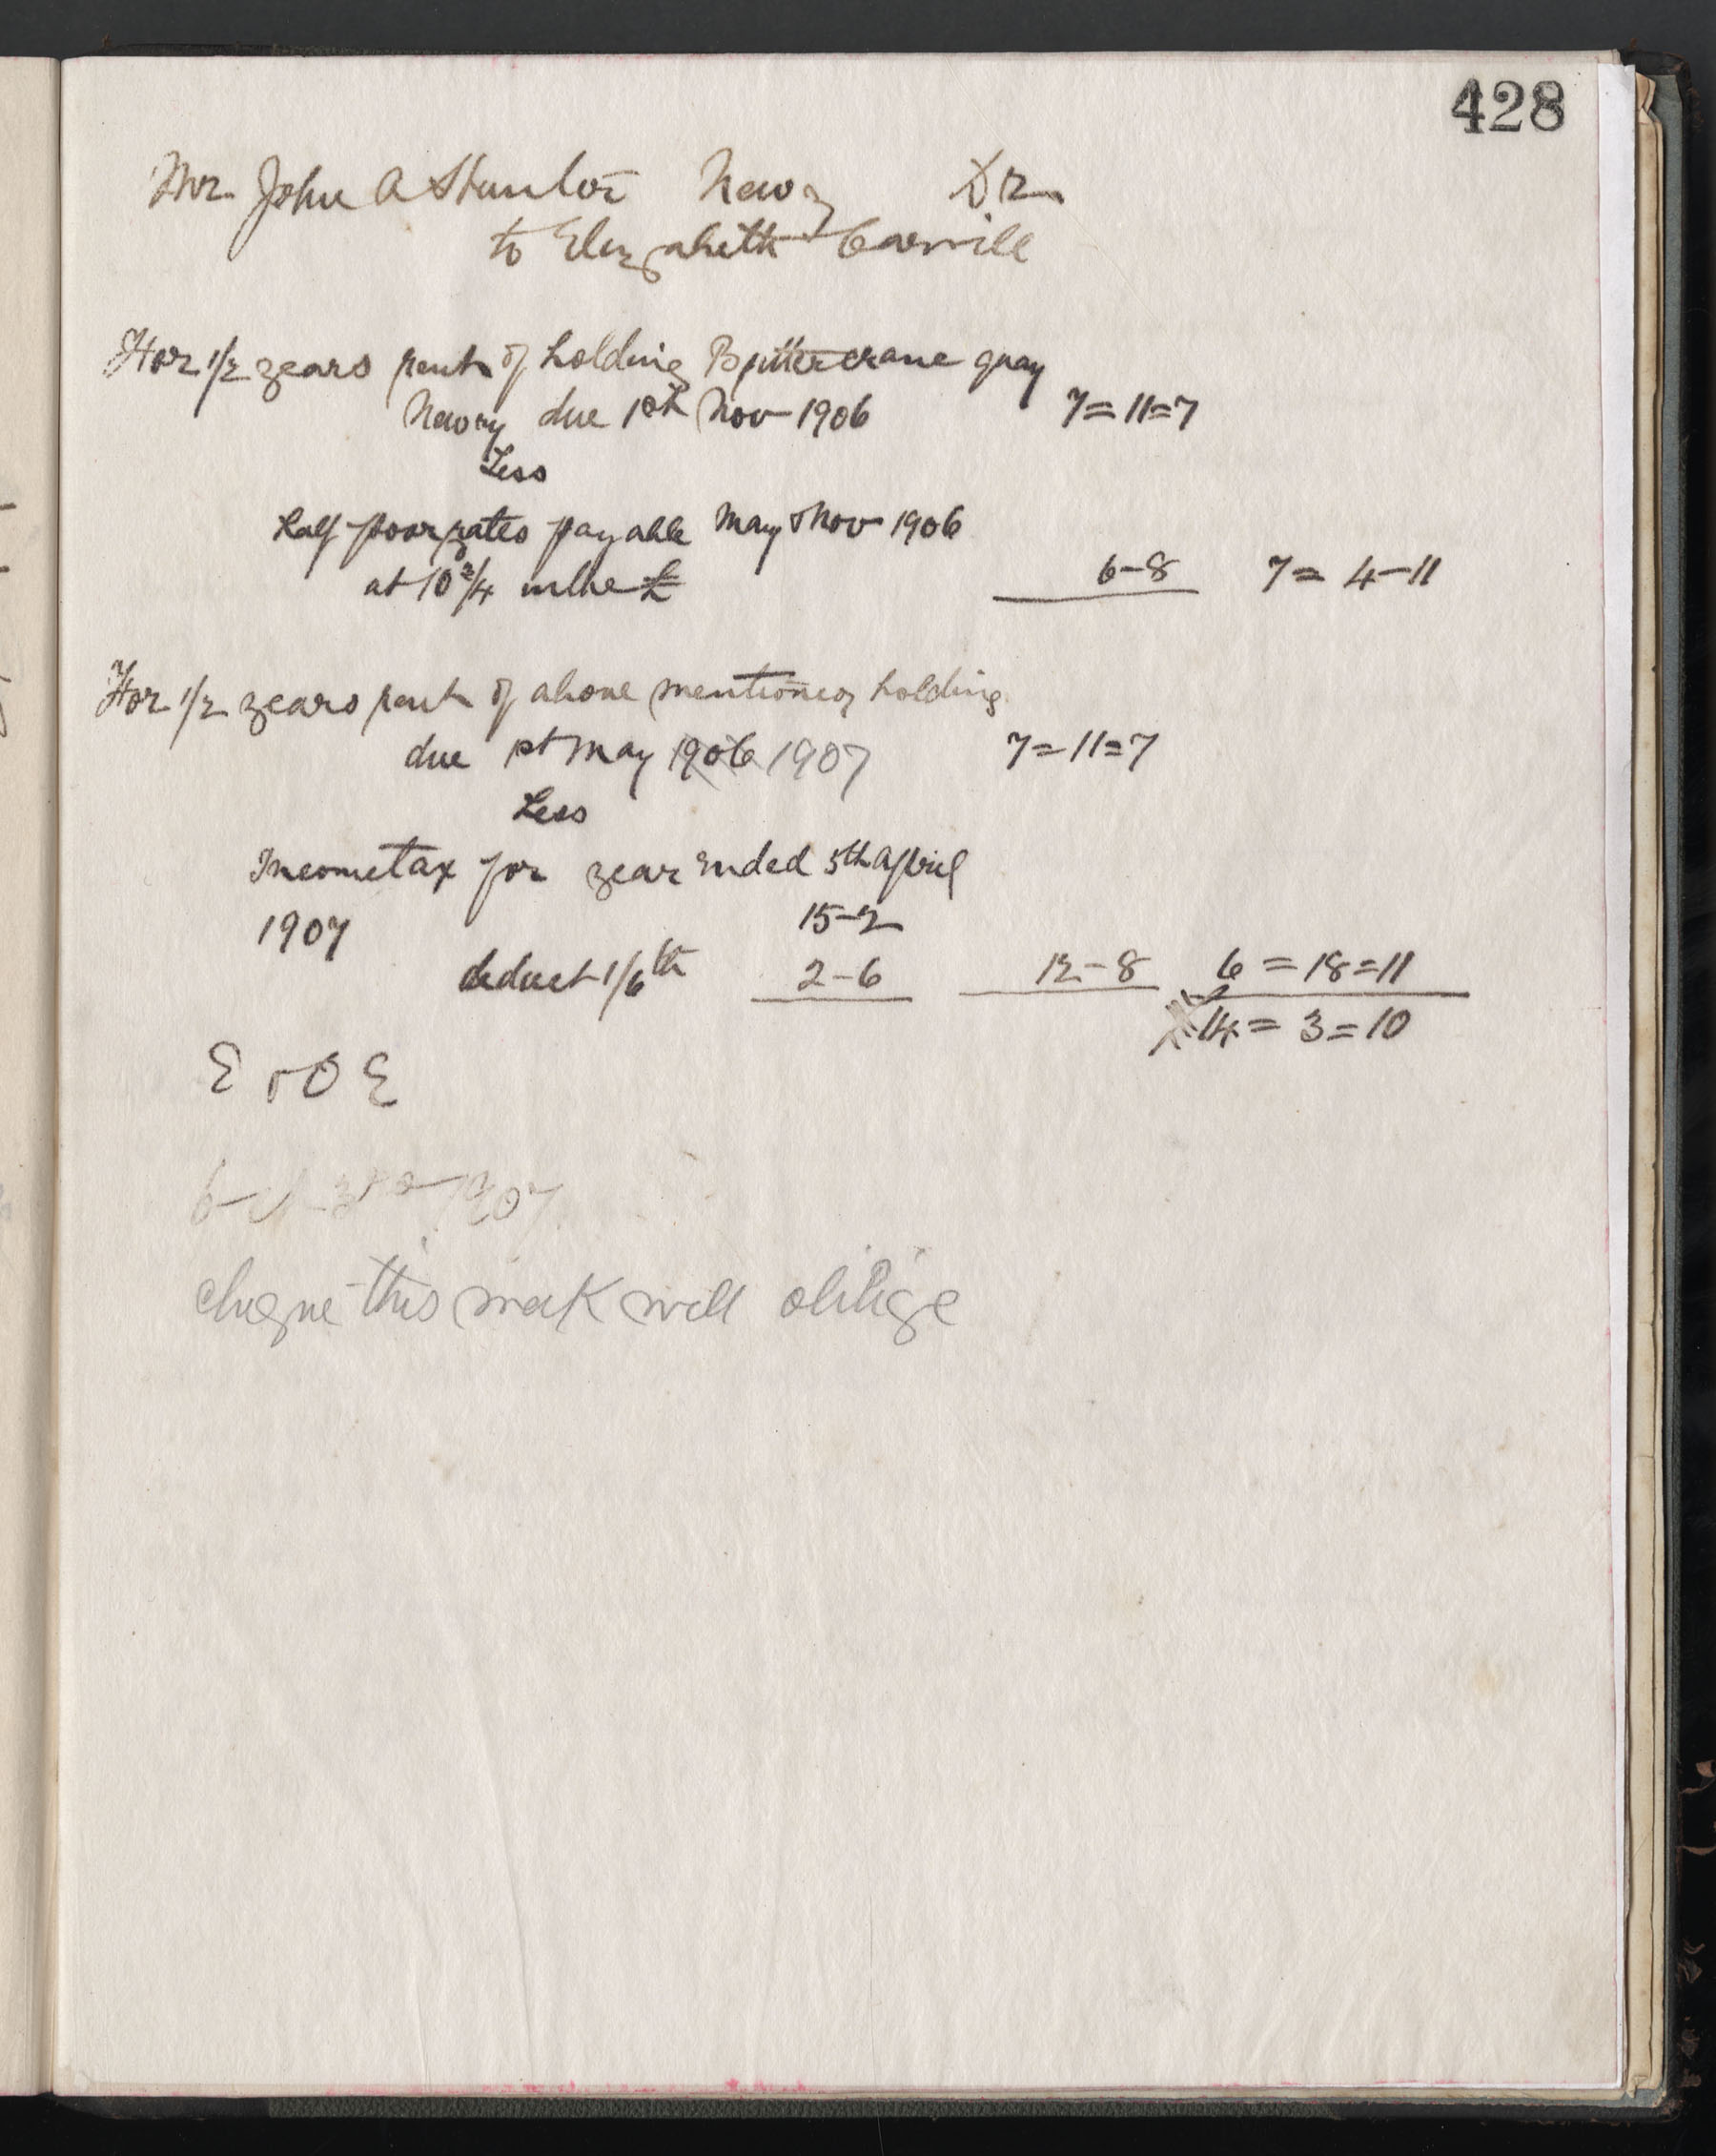 428
Mr John A Newry Dr
to Elizabeth Carvill
For 1/2 years rent of holding Buttercrane quay
Newry due 1st Nov 1906 7=11=7
Less
half poor rates payable May & Nov 1906
at 10 3/4 in the £ 6-8 7= 4-11
For 1/2 years rent of above mentioned holding
due 1st May 1906 1907 7=11=7
Less
Income tax for year ended 5th April
1907 15-2
deduct 1/6th 2-6 12-8 6=18=11
14=3=10
E & O E
1907
cheque this week will oblige